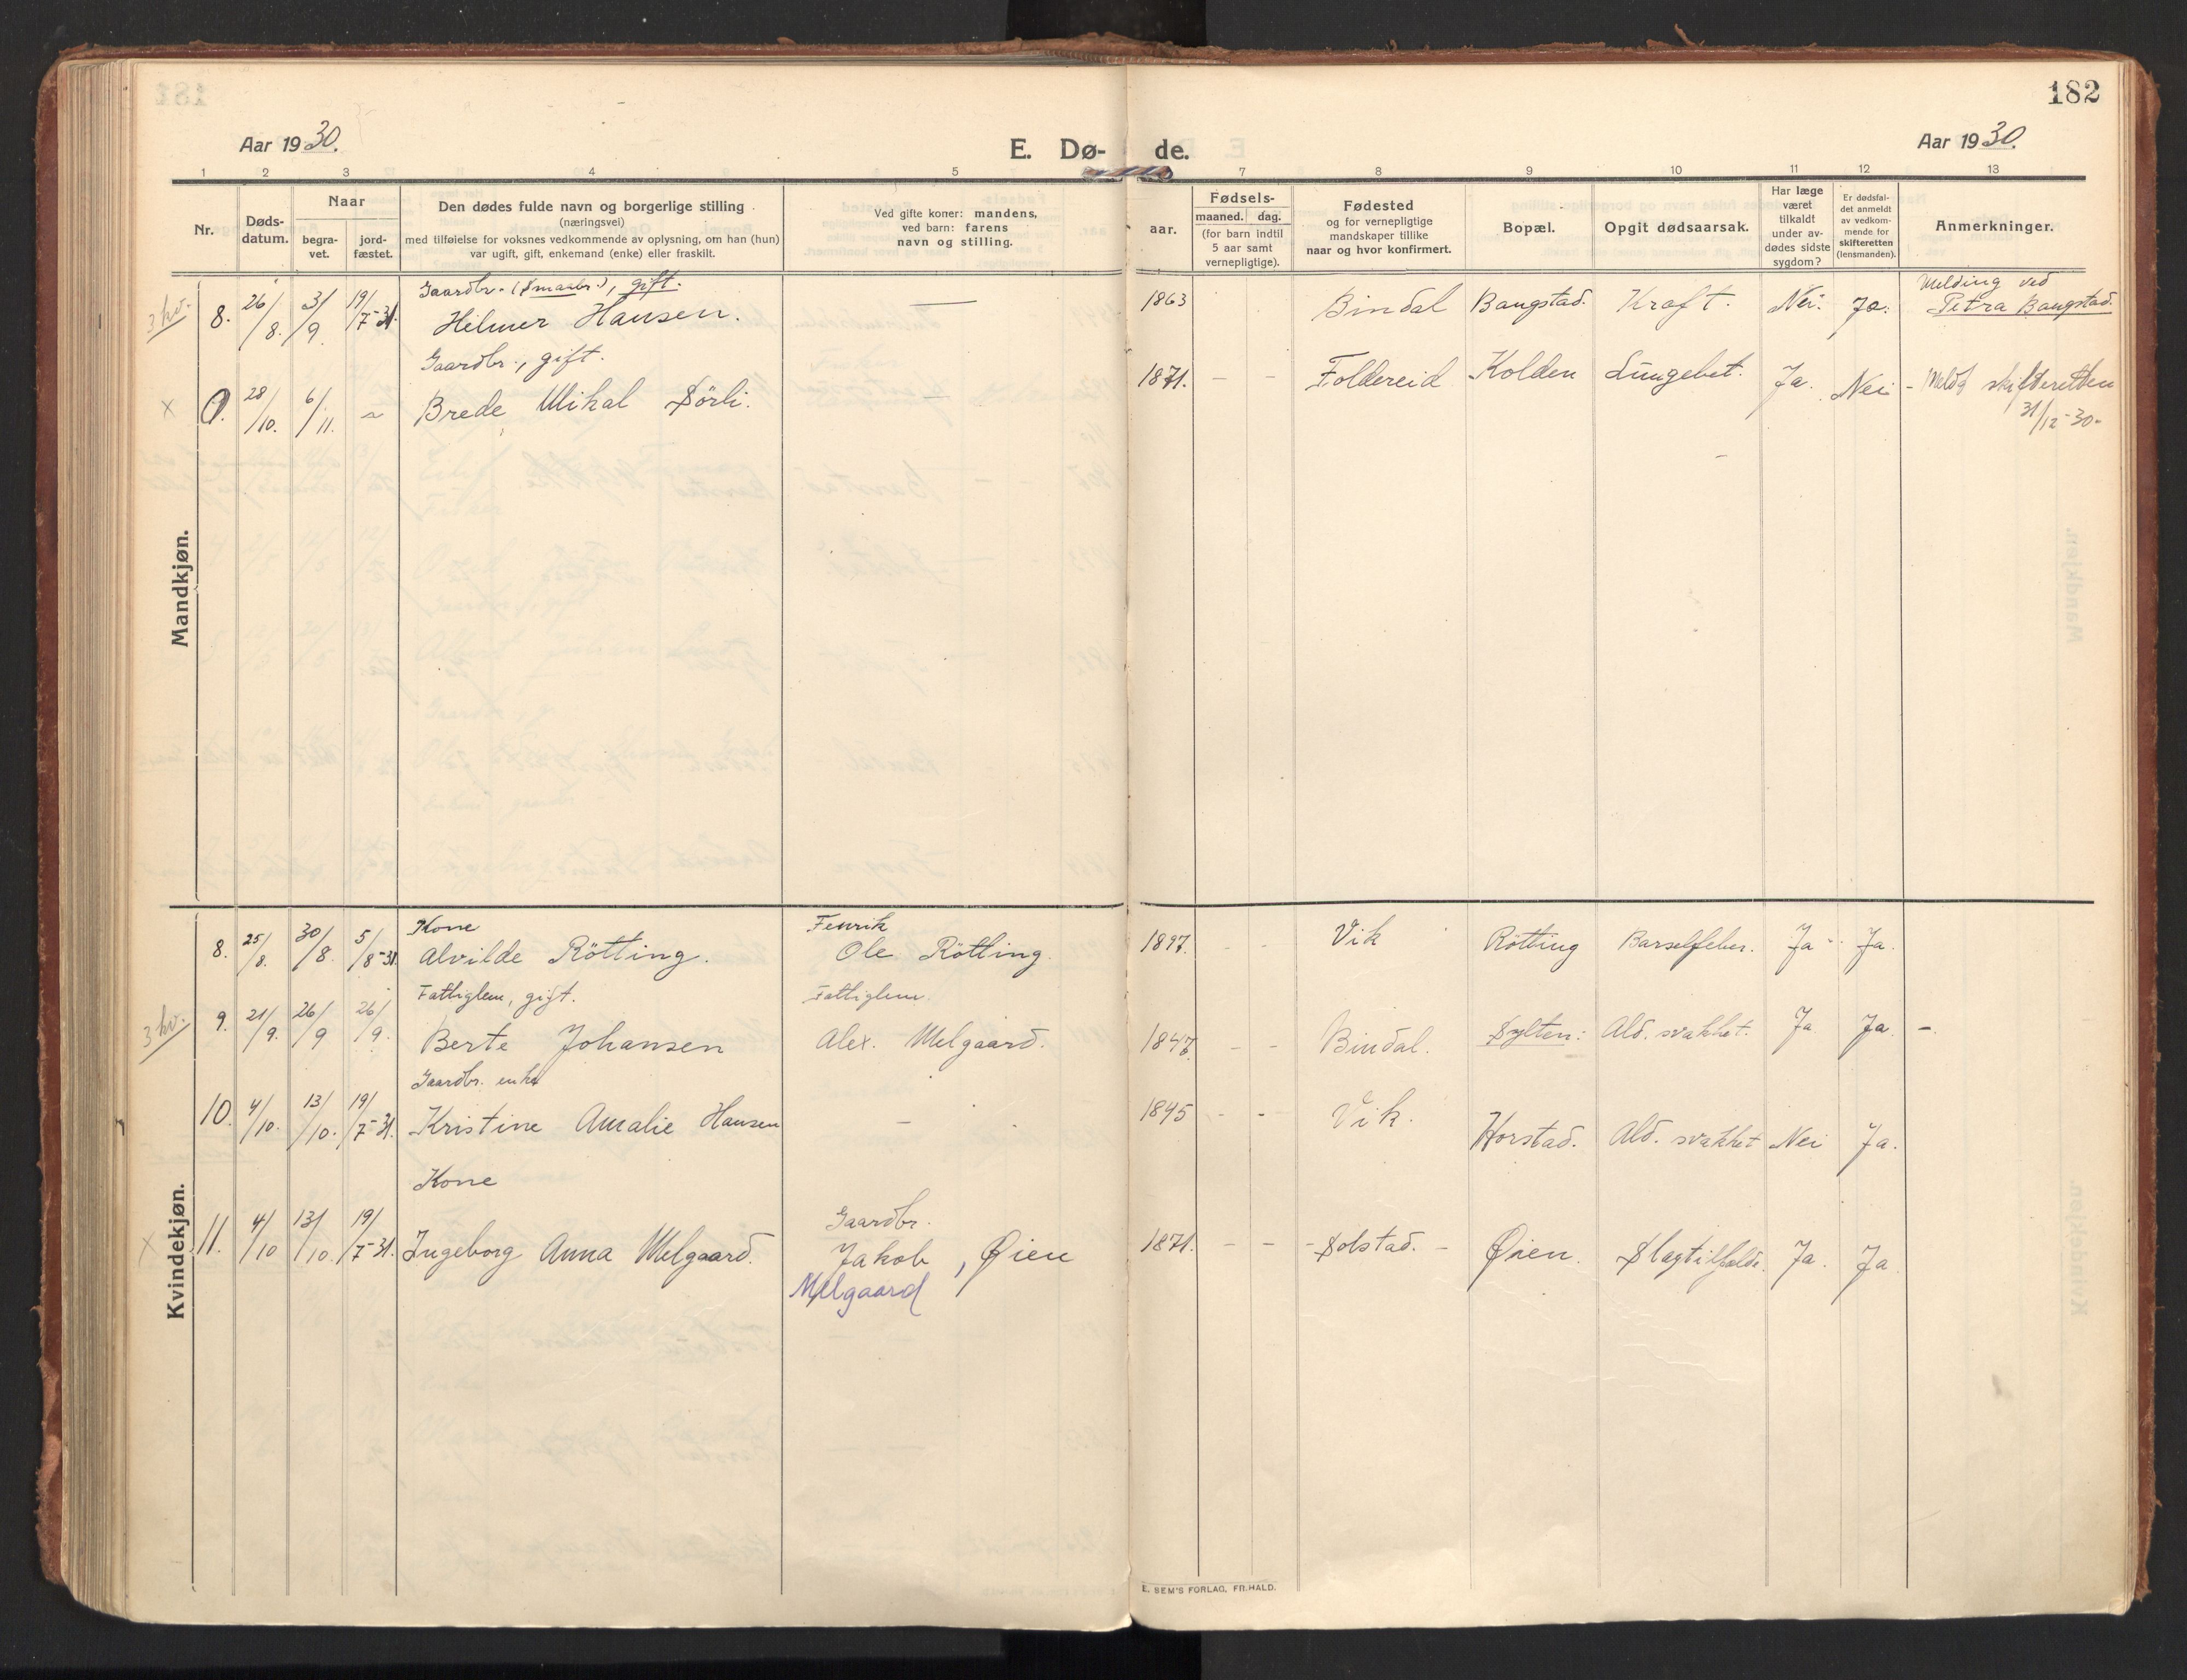 182
Aar 1930.
E. Dø- de.
Aar 1930.
1 2 3 4 5 7 8 9 10 11 12 13
Nr.
Døds-
datum.
Naar
begra-
vet.
jord-
fæstet.
Den dødes fulde navn og borgerlige stilling
(næringsvei)
med tilføielse for voksnes vedkommende av oplysning, om han (hun)
var ugift, gift, enkemand (enke) eller fraskilt.
Ved gifte koner: mandens,
ved barn: farens
navn og stilling.
aar.
Fødsels-
maaned. dag.
(for barn indtil
5 aar samt
vernepligtige).
Fødested
og for vernepligtige
mandskaper tillike
naar og hvor konfirmert.
Bopæl.
Opgit dødsaarsak.
Har læge
været
tilkaldt
under av-
dødes sidste
sygdom?
Er dødsfal-
det anmeldt
av vedkom-
mende for
skifteretten
(lensmanden).
Anmerkninger.
Mandkjøn.
Gaardbr. (Smaabr.), gift.
3 kv. 8. 26/8. 3/9. 19/7-31. Hilmer Hansen. — 1863 Bindal Bangstad. Kræft. Nei. Ja. Melding ved
Petra Bangstad.
Gaardbr., gift.
x 9. 28/10. 6/11. ~ Brede Mikal Sörli. – 1871. – – Foldereid Kolden Lungebet. Ja. Nei – Meldt skifteretten
31/12-30.
Kvindekjøn.
Kone Fenrik
8. 25/8. 30/8. 5/8-31 Alvilde Rötting. Ole Rötting. 1897. - - Vik Rötting Barselfeber. Ja Ja.
Fattiglem, gift. Fattiglem.
3 kv. 9. 21/9. 26/9 26/9. Berte Johansen Alex. Melgaard. 1847. – – Bindal. Sylten: Ald. svakhet. Ja Ja. –
Gaardbr. enke
10. 4/10. 13/10. 19/7-31. Kristine Amalie Hansen – 1845 - - Vik. Horstad. Ald. svakhet Nei Ja.
Kone
Gaardbr.
x 11. 4/10 13/10. 19/7-31. Ingeborg Anna Melgaard. Jakob, Øien 1871. – – - Solstad. – Øien. Slagtilfælde. Ja. Ja
Melgaard
E. SEM'S FORLAG, FR.HALD.